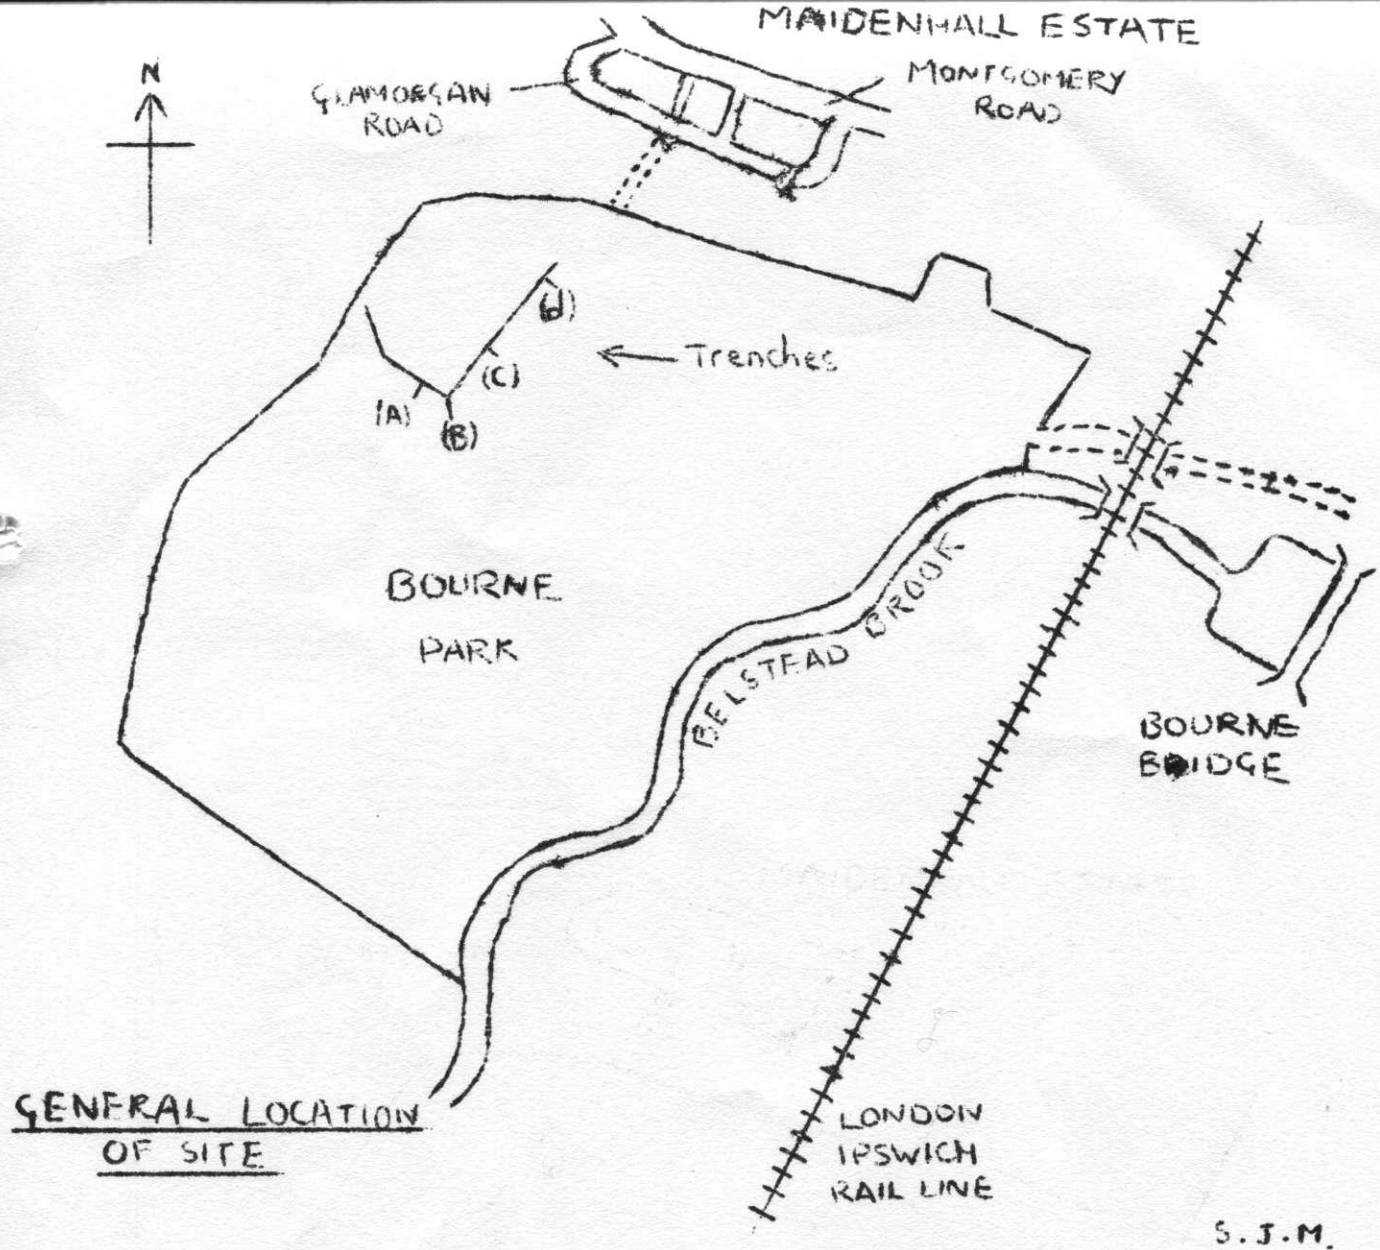 MAIDENHALL ESTATE
N
GLAMORGAN
ROAD
MONTGOMERY
ROAD
(d)
Trenches
(C)
(A)
(B)
BOURNE
PARK
BELSTEAD BROOK
BOURNE
BRIDGE
GENERAL LOCATION
OF SITE
LONDON
IPSWICH
RAIL LINE
S.J.M.